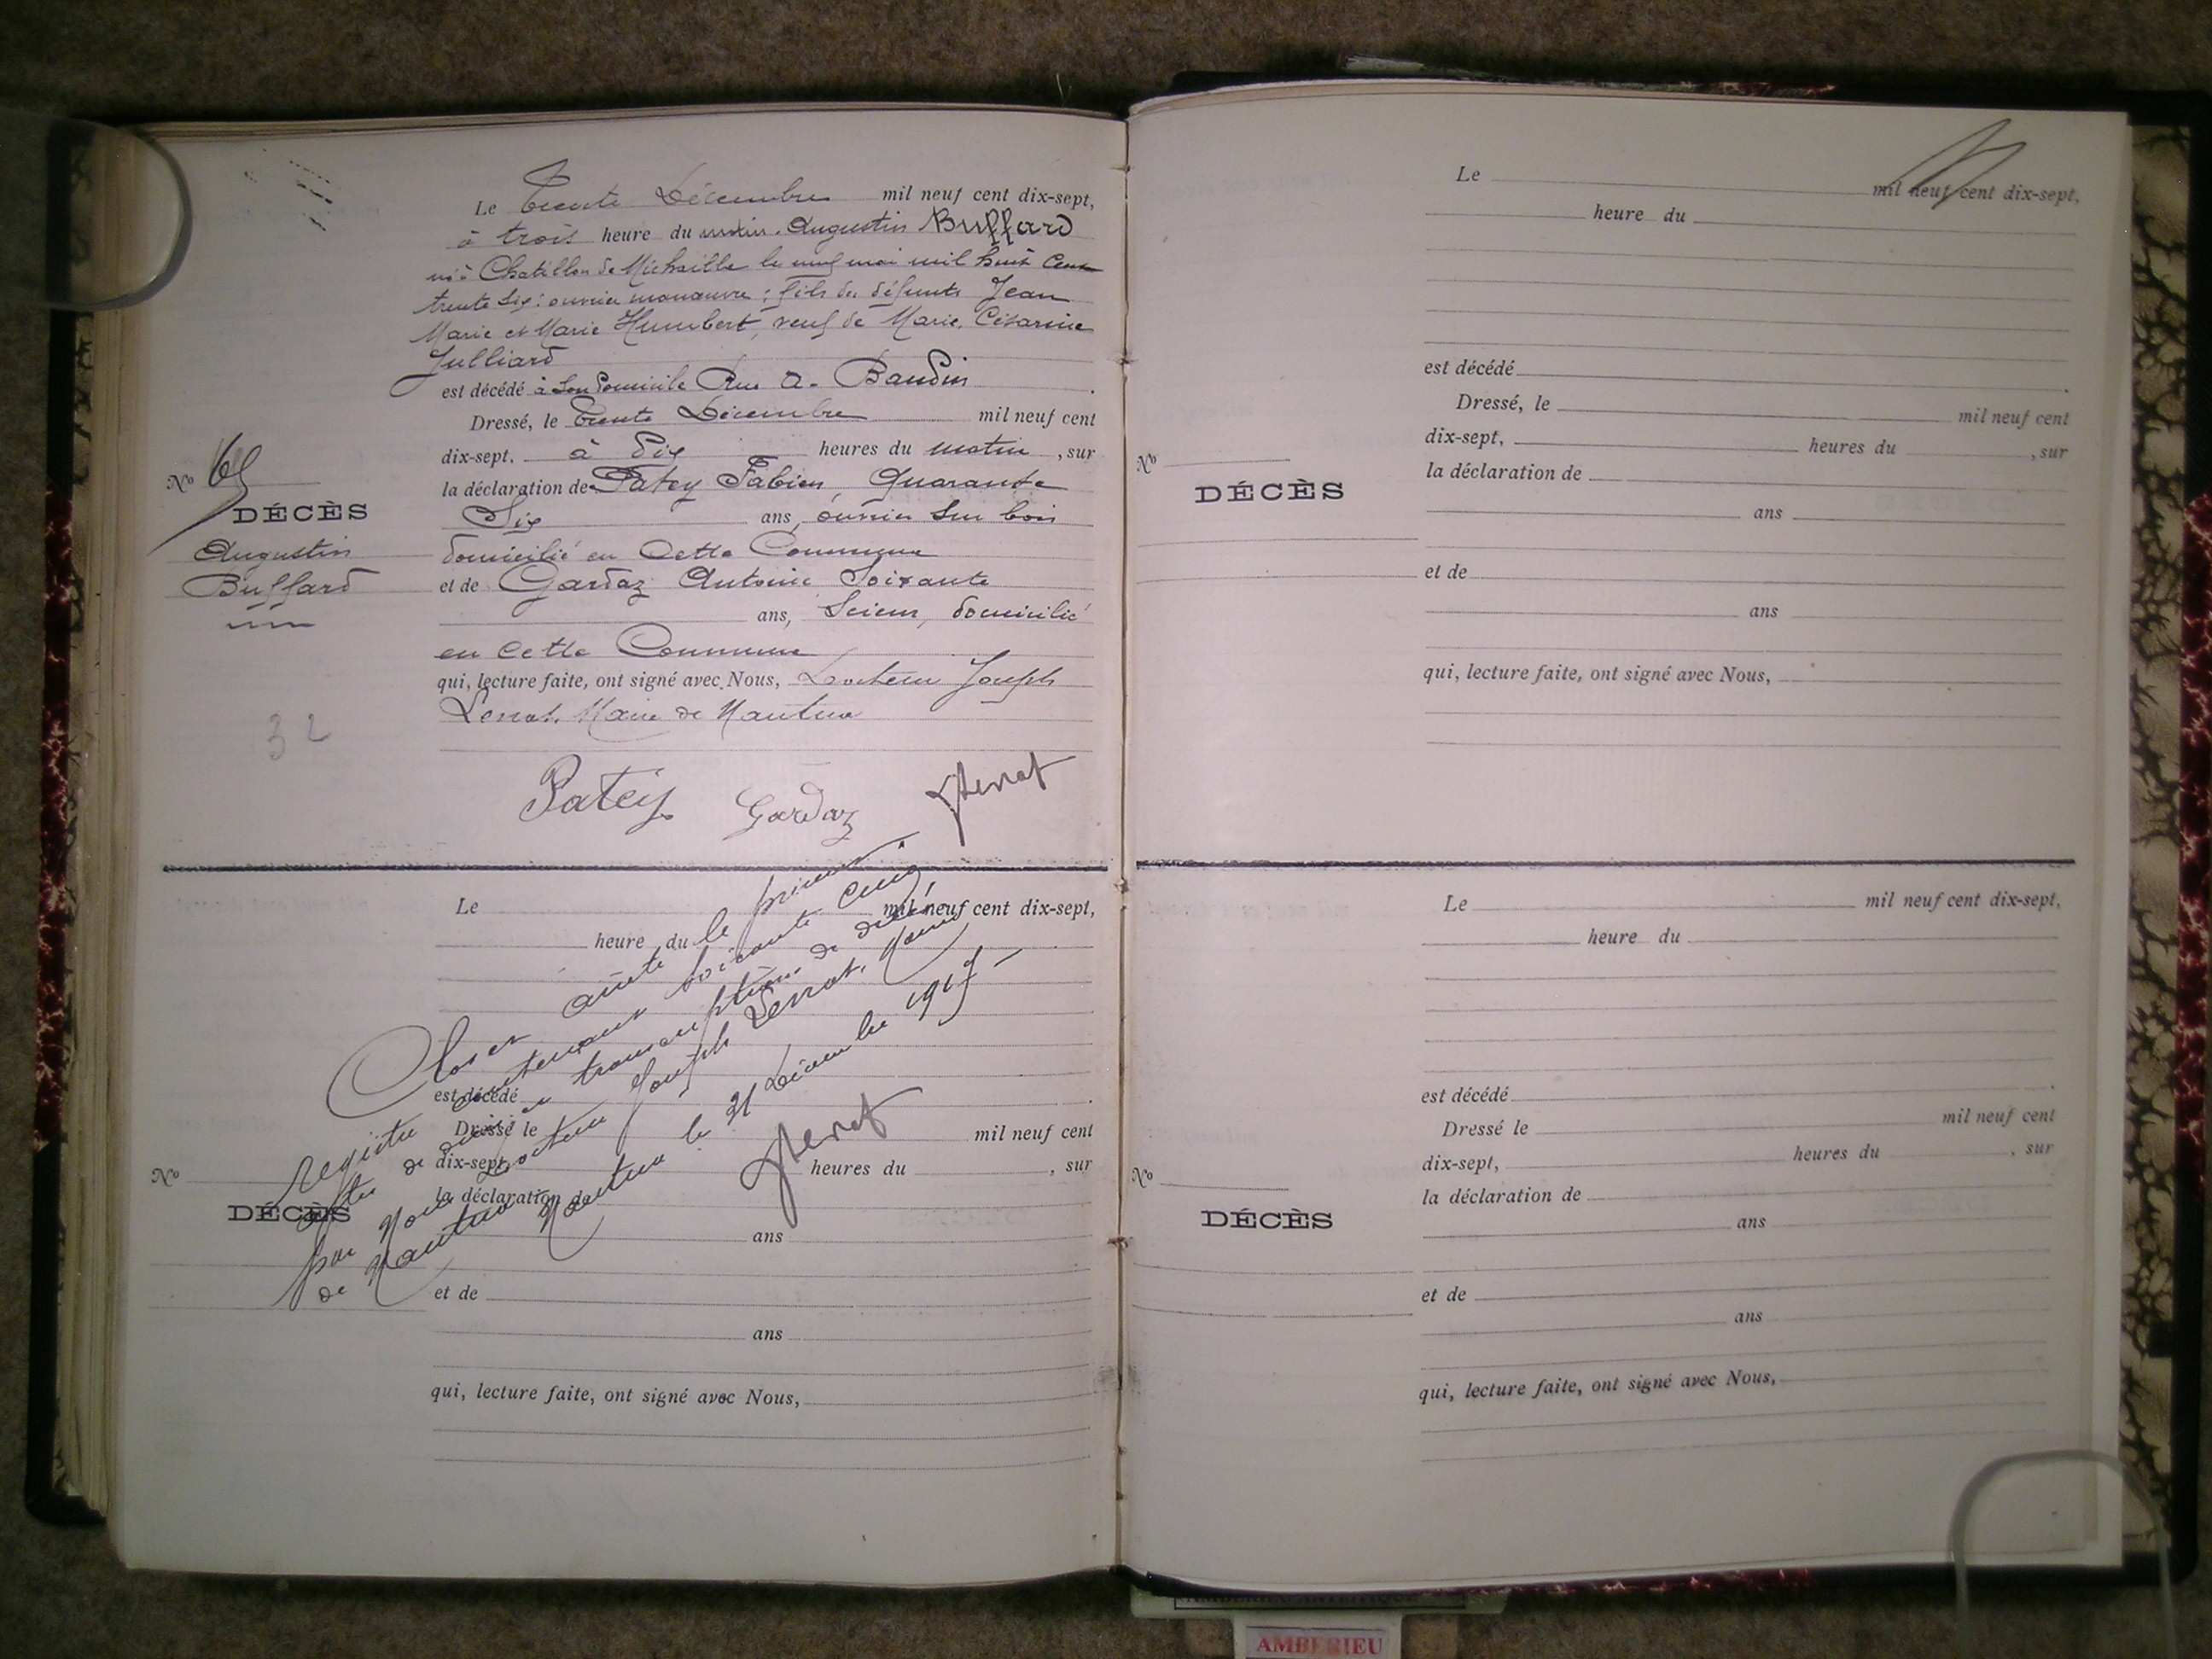 Le Trente Décembre mil neuf cent dix-sept,
à trois heure du matin. Augustin Buffard
né à Chatillon de Michaille le neuf mai mil huit cent
trente six : ouvrier manœuvre ; fils des défunts Jean
Marie et Marie Humbert, veuf de Marie, Césarine
Julliard
est décédé à son domicile Rue A. Baudin
Dressé, le Trente Décembre mil neuf cent
dix-sept. à Dix heures du matin, sur
la déclaration de Patey Fabien, Quarante
Six ans, ouvrier sur bois
domicilié en Cette Commune
et de Gardaz Antoine Soixante
ans, Scieur, domicilié
en Cette Commune
qui, lecture faite, ont signé avec Nous, Docteur Joseph
Levrat, Maire de Nantua
Patey Gardaz JLevrat
No 65
DÉCÈS
Augustin
Buffard
32
Le mil neuf cent dix-sept,
heure du
est décédé
Dressé le mil neuf cent
dix-sept, heures du , sur
la déclaration de
ans
et de
ans
qui, lecture faite, ont signé avec Nous,
No
DÉCÈS
Clos et arrêté le présent
registre contenant soixante cinq
actes de décès transcriptions de décès
par Nous Docteur Joseph Levrat, Maire
de Nantua
Nantua le 31 Décembre 1917
JLevrat
Le mil neuf cent dix-sept,
heure du
est décédé
Dressé, le mil neuf cent
dix-sept, heures du , sur
la déclaration de
ans
et de
ans
qui, lecture faite, ont signé avec Nous,
No
DÉCÈS
Le mil neuf cent dix-sept,
heure du
est décédé
Dressé le mil neuf cent
dix-sept, heures du , sur
la déclaration de
ans
et de
ans
qui, lecture faite, ont signé avec Nous,
No
DÉCÈS
AMBERIEU